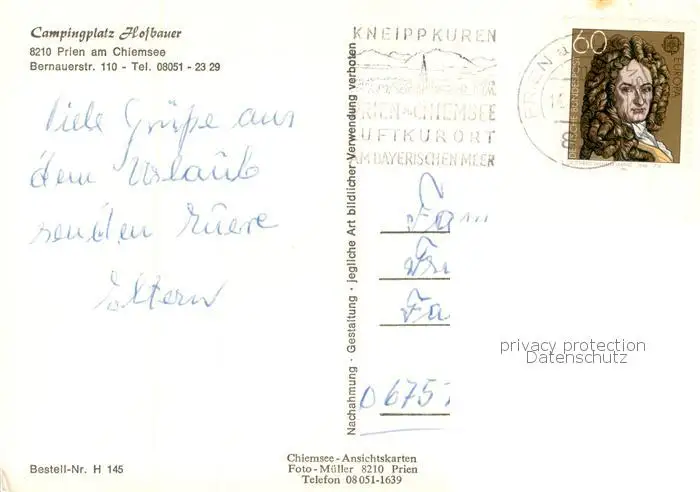 Campingplatz Hofbauer
8210 Prien am Chiemsee
Bernauerstr. 110 - Tel. 08051 - 23 29
Viele Grüße aus
dem Urlaub
senden Euere
Eltern
Bestell-Nr. H 145
Nachahmung · Gestaltung · jegliche Art bildlicher Verwendung verboten
KNEIPPKUREN
PRIEN am CHIEMSEE
LUFTKURORT
AM BAYERISCHEN MEER
PRIEN a
60
EUROPA
DEUTSCHE BUNDESPOST
Fam
Fa
0675
privacy protection
Datenschutz
Chiemsee-Ansichtskarten
Foto-Müller 8210 Prien
Telefon 08051-1639